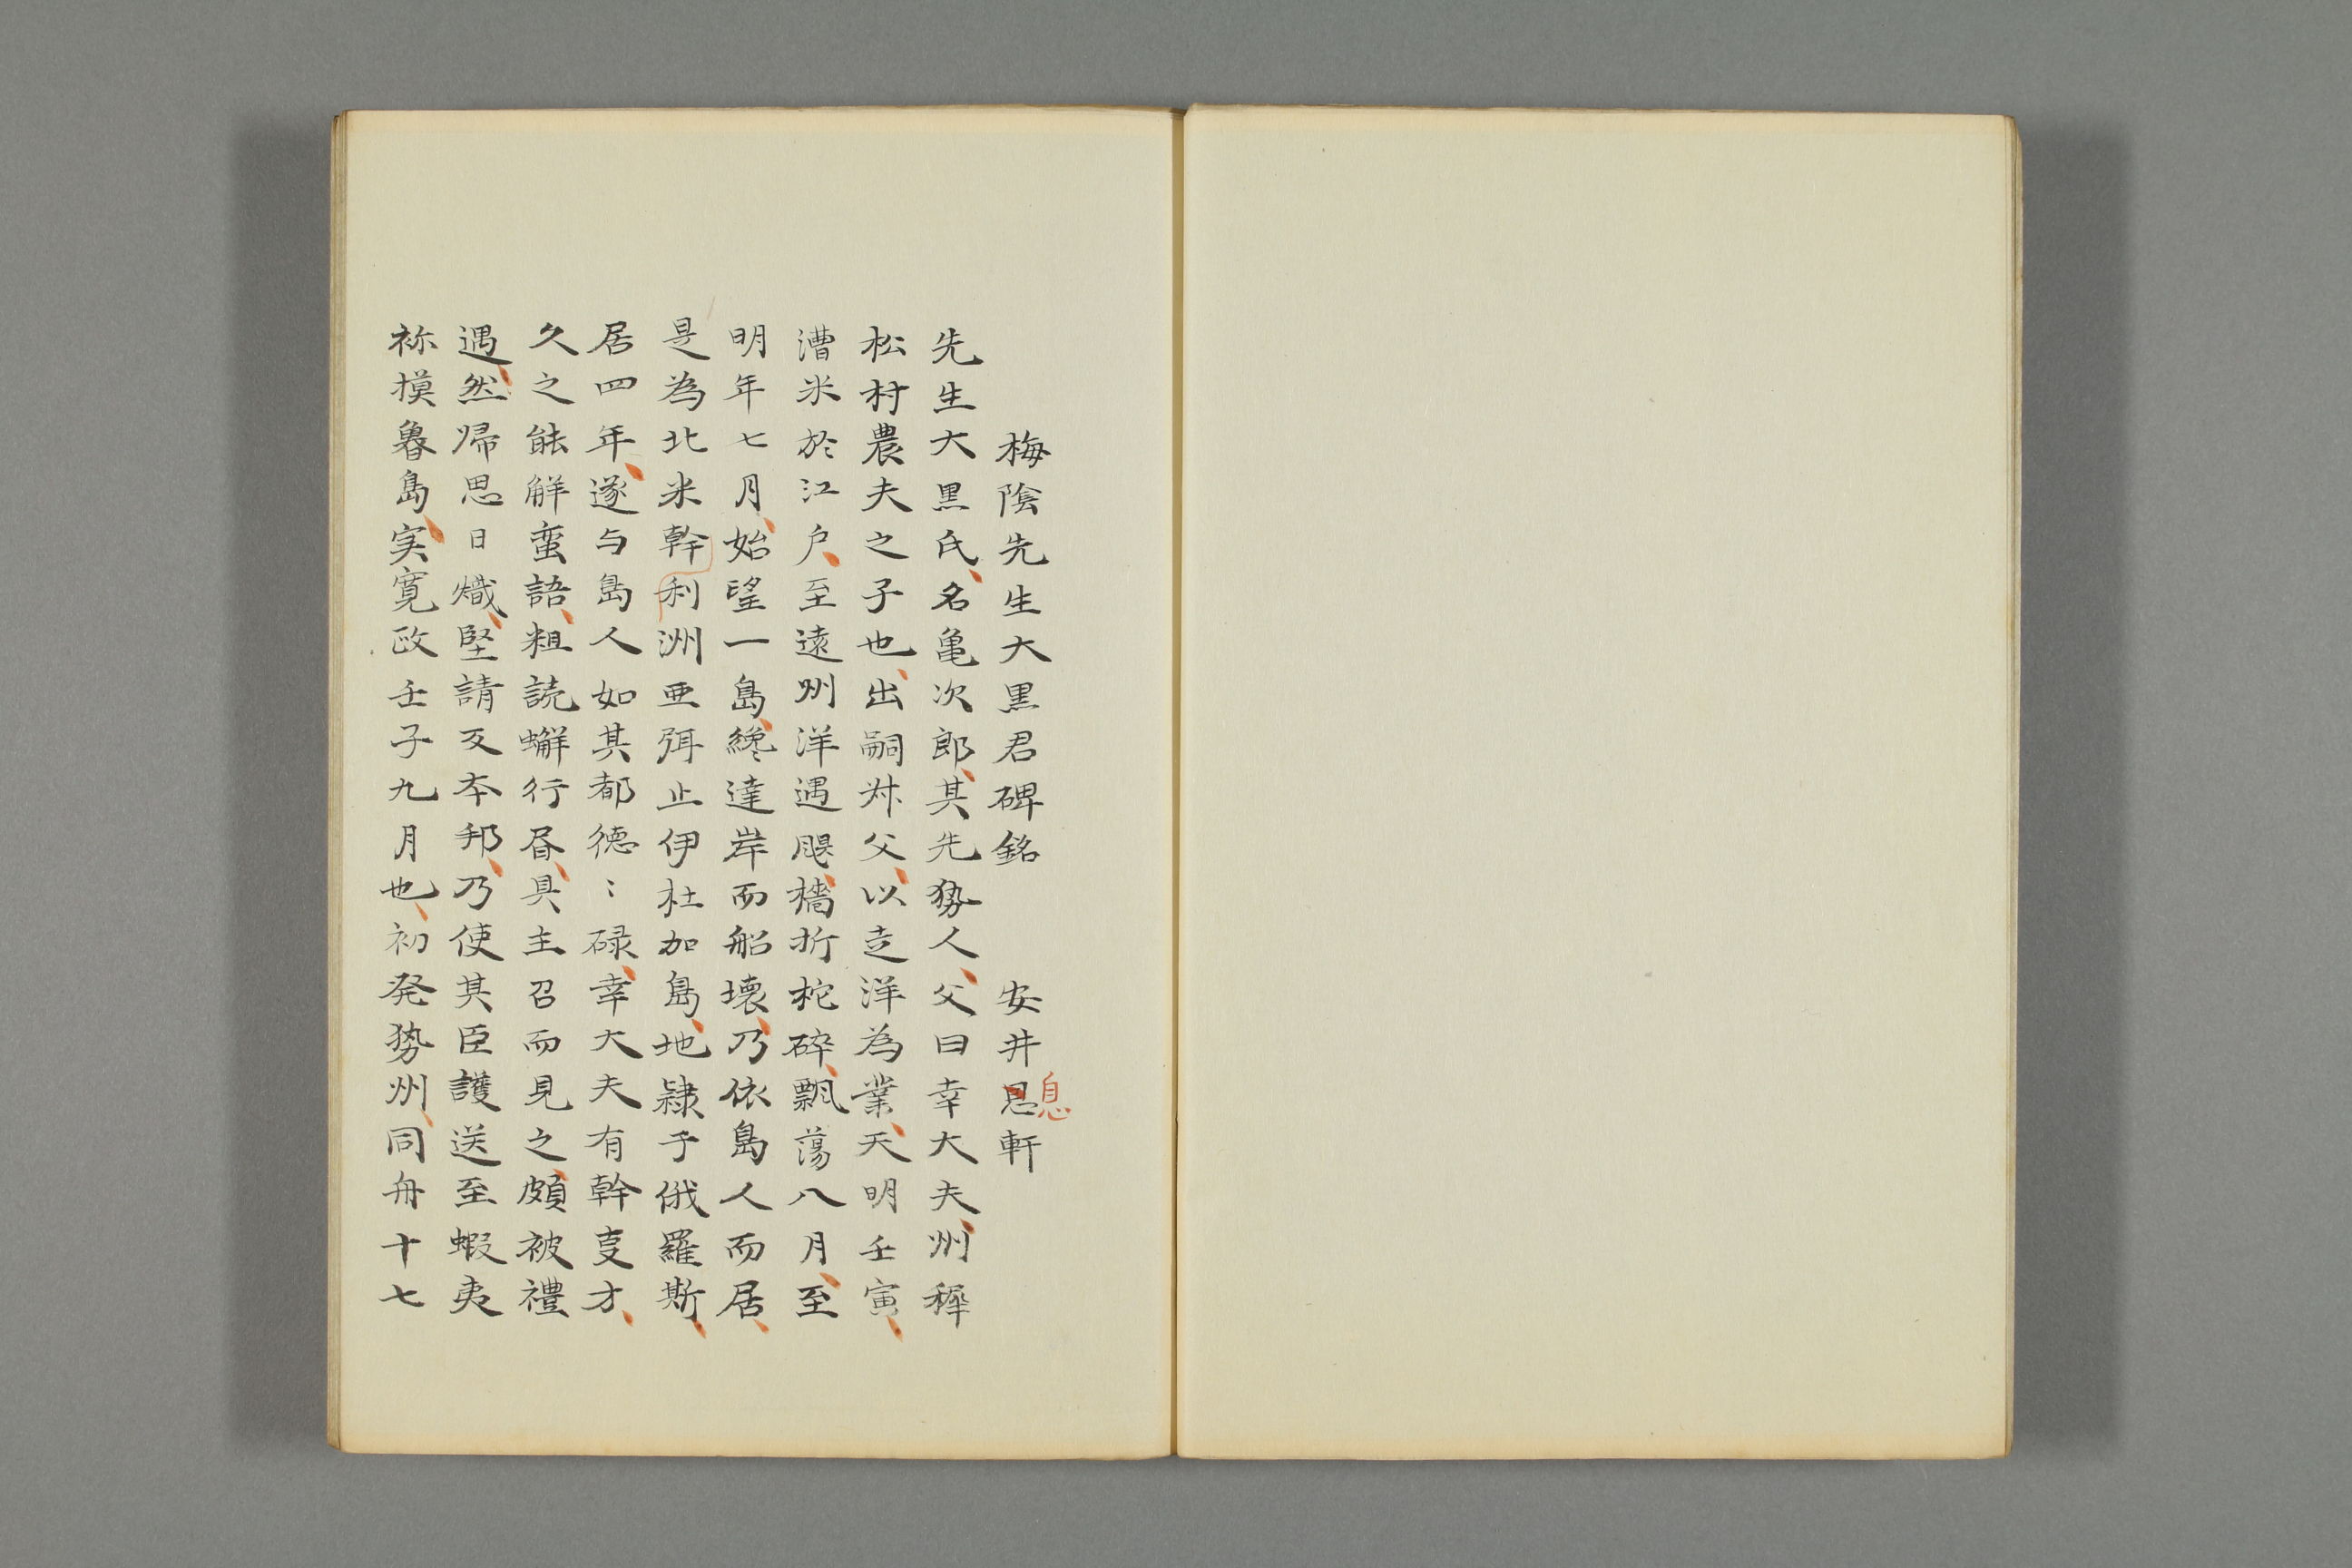 梅陰先生大黒君碑銘　安井息軒
先生大黒氏、名亀次郎、其先勢人、父曰幸大夫、州稚
松村農夫之子也、出嗣叔父、以走洋為業、天明壬寅、
漕米於江戸、至遠州洋遇颶、檣折柁碎、飄蕩八月、至
明年七月、始望一島、纔達岸而船壊、乃依島人而居、
是為北米幹利洲亜弭止伊杜加島、地隷于俄羅斯、
居四年、遂与島人如其都徳〻碌、幸大夫有幹㕝才、
久之能觧蛮語、粗読蠏行昏、具主召而見之、頗被禮
遇、然帰思日熾、堅請反本邦、乃使其臣護送至蝦夷
祢摸魯島、実寛政壬子九月也、初発勢州、同舟十七